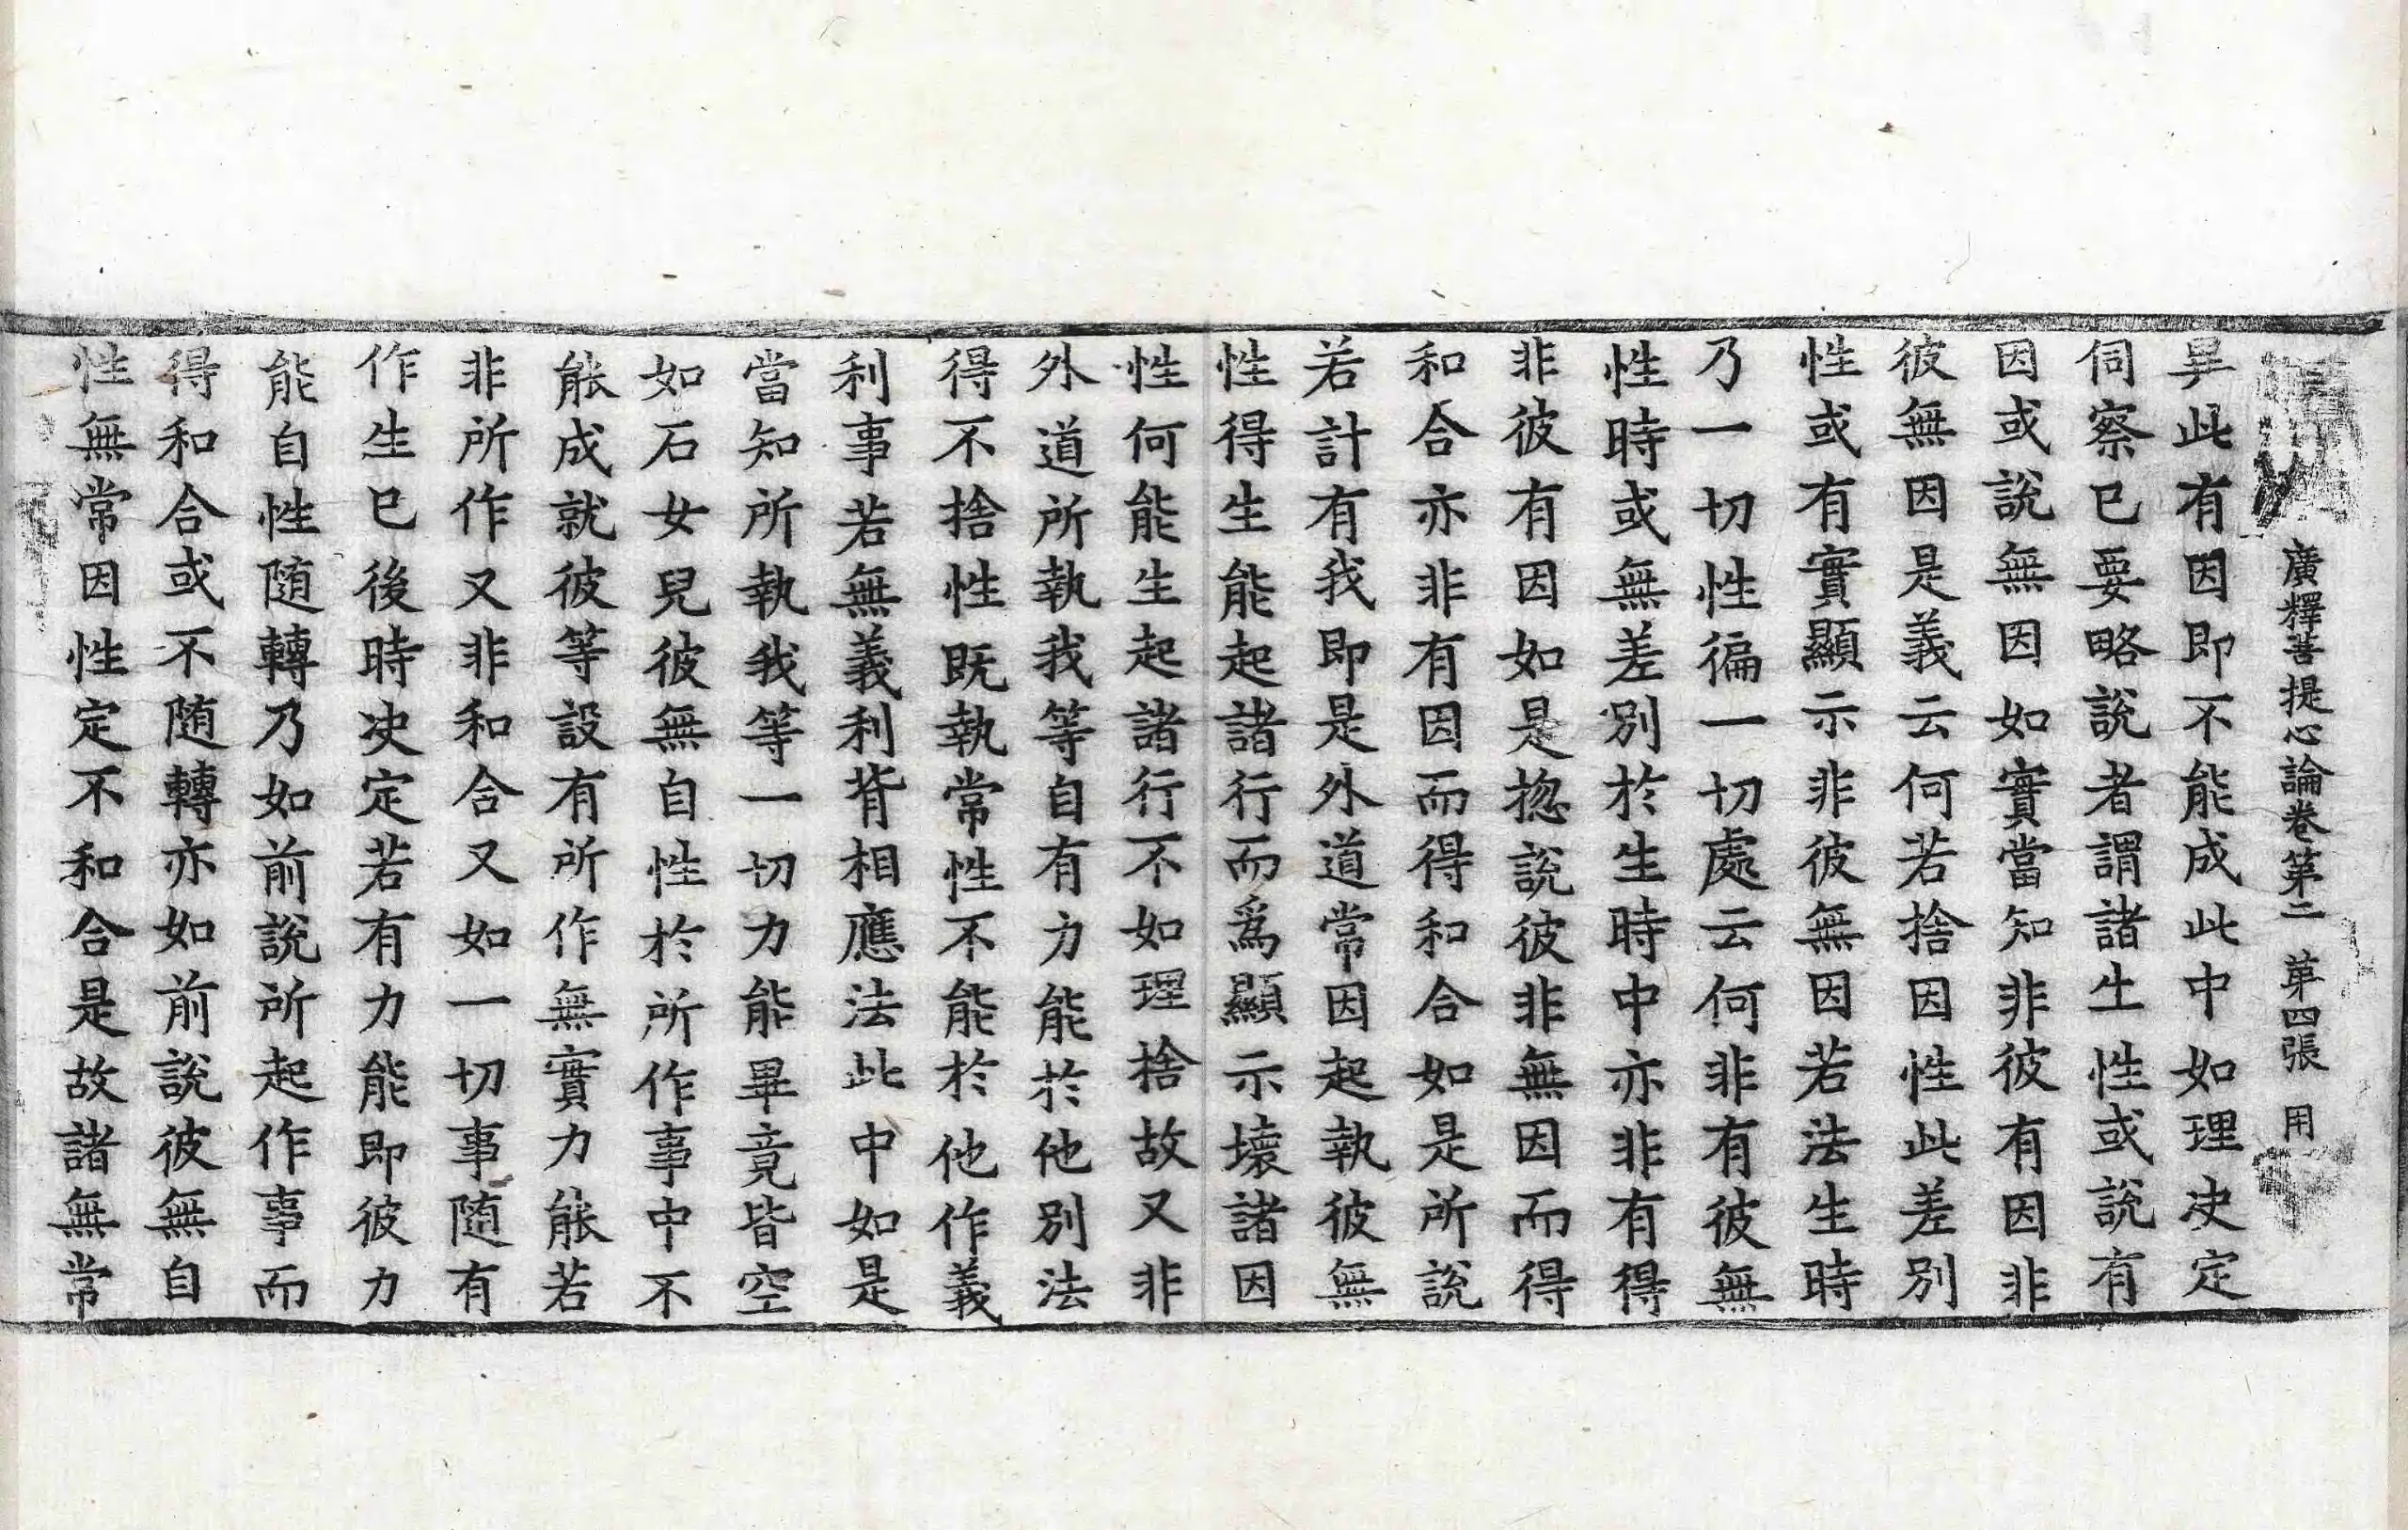 廣釋菩提心論卷第二 苐四張 用
異此有因即不能成此中如理决定
伺察已要略說者謂諸生性或說有
因或說無因如實當知非彼有因非
彼無因是義云何若捨因性此差別
性或有實顯示非彼無因若法生時
乃一切性徧一切處云何非有彼無
性時或無差別於生時中亦非有得
非彼有因如是揔說彼非無因而得
和合亦非有因而得和合如是所說
若計有我即是外道常因起執彼無
性得生能起諸行而爲顯示壞諸因
性何能生起諸行不如理捨故又非
外道所執我等自有力能於他別法
得不捨性既執常性不能於他作義
利事若無義利背相應法此中如是
當知所執我等一切力能畢竟皆空
如石女兒彼無自性於所作事中不
能成就彼等設有所作無實力能若
非所作又非和合又如一切事随有
作生已後時决定若有力能即彼力
能自性随轉乃如前說所起作事而
得和合或不随轉亦如前說彼無自
性無常因性定不和合是故諸無常